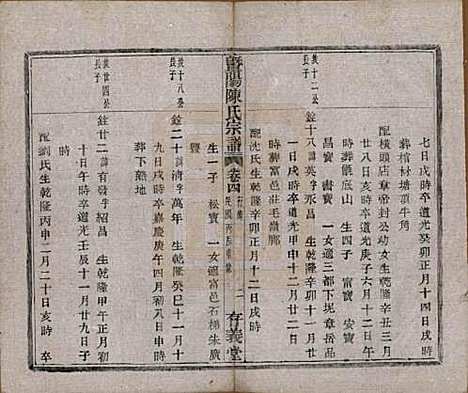 七日戌時卒道光癸卯正月十四日戌時
葬棺材塘項牛角
配橫頭店章帝封公幼女生乾隆辛丑三月
廿八日亥時卒道光庚子六月十二日午
時葬儀底山 生四子 富寶 安寶
昌寶 時寶 一女適三都下坭章岳品
贅十二公
長子
銓十八諱英字永昌 生乾隆辛卯十一月
一日戌時卒道光甲申十二月廿一日戌
時葬富邑莊毛嶺腳
配沈氏生乾隆辛卯正月十二日戌時
暨陽陳氏宗譜 卷四 二 存義堂
生一子 松寶 一女適富邑石梯朱廣
贅十八公
長子
銓二十諱濟字萬年 生乾隆癸巳十一月十
九日戌時卒嘉慶庚午四月初八日申時
葬下蔭地
銓廿二諱有發字紹昌 生乾隆甲午三月
十日午時卒道光壬辰十一月廿九日子
時
配劉氏生乾隆丙申二月二十日亥時 卒